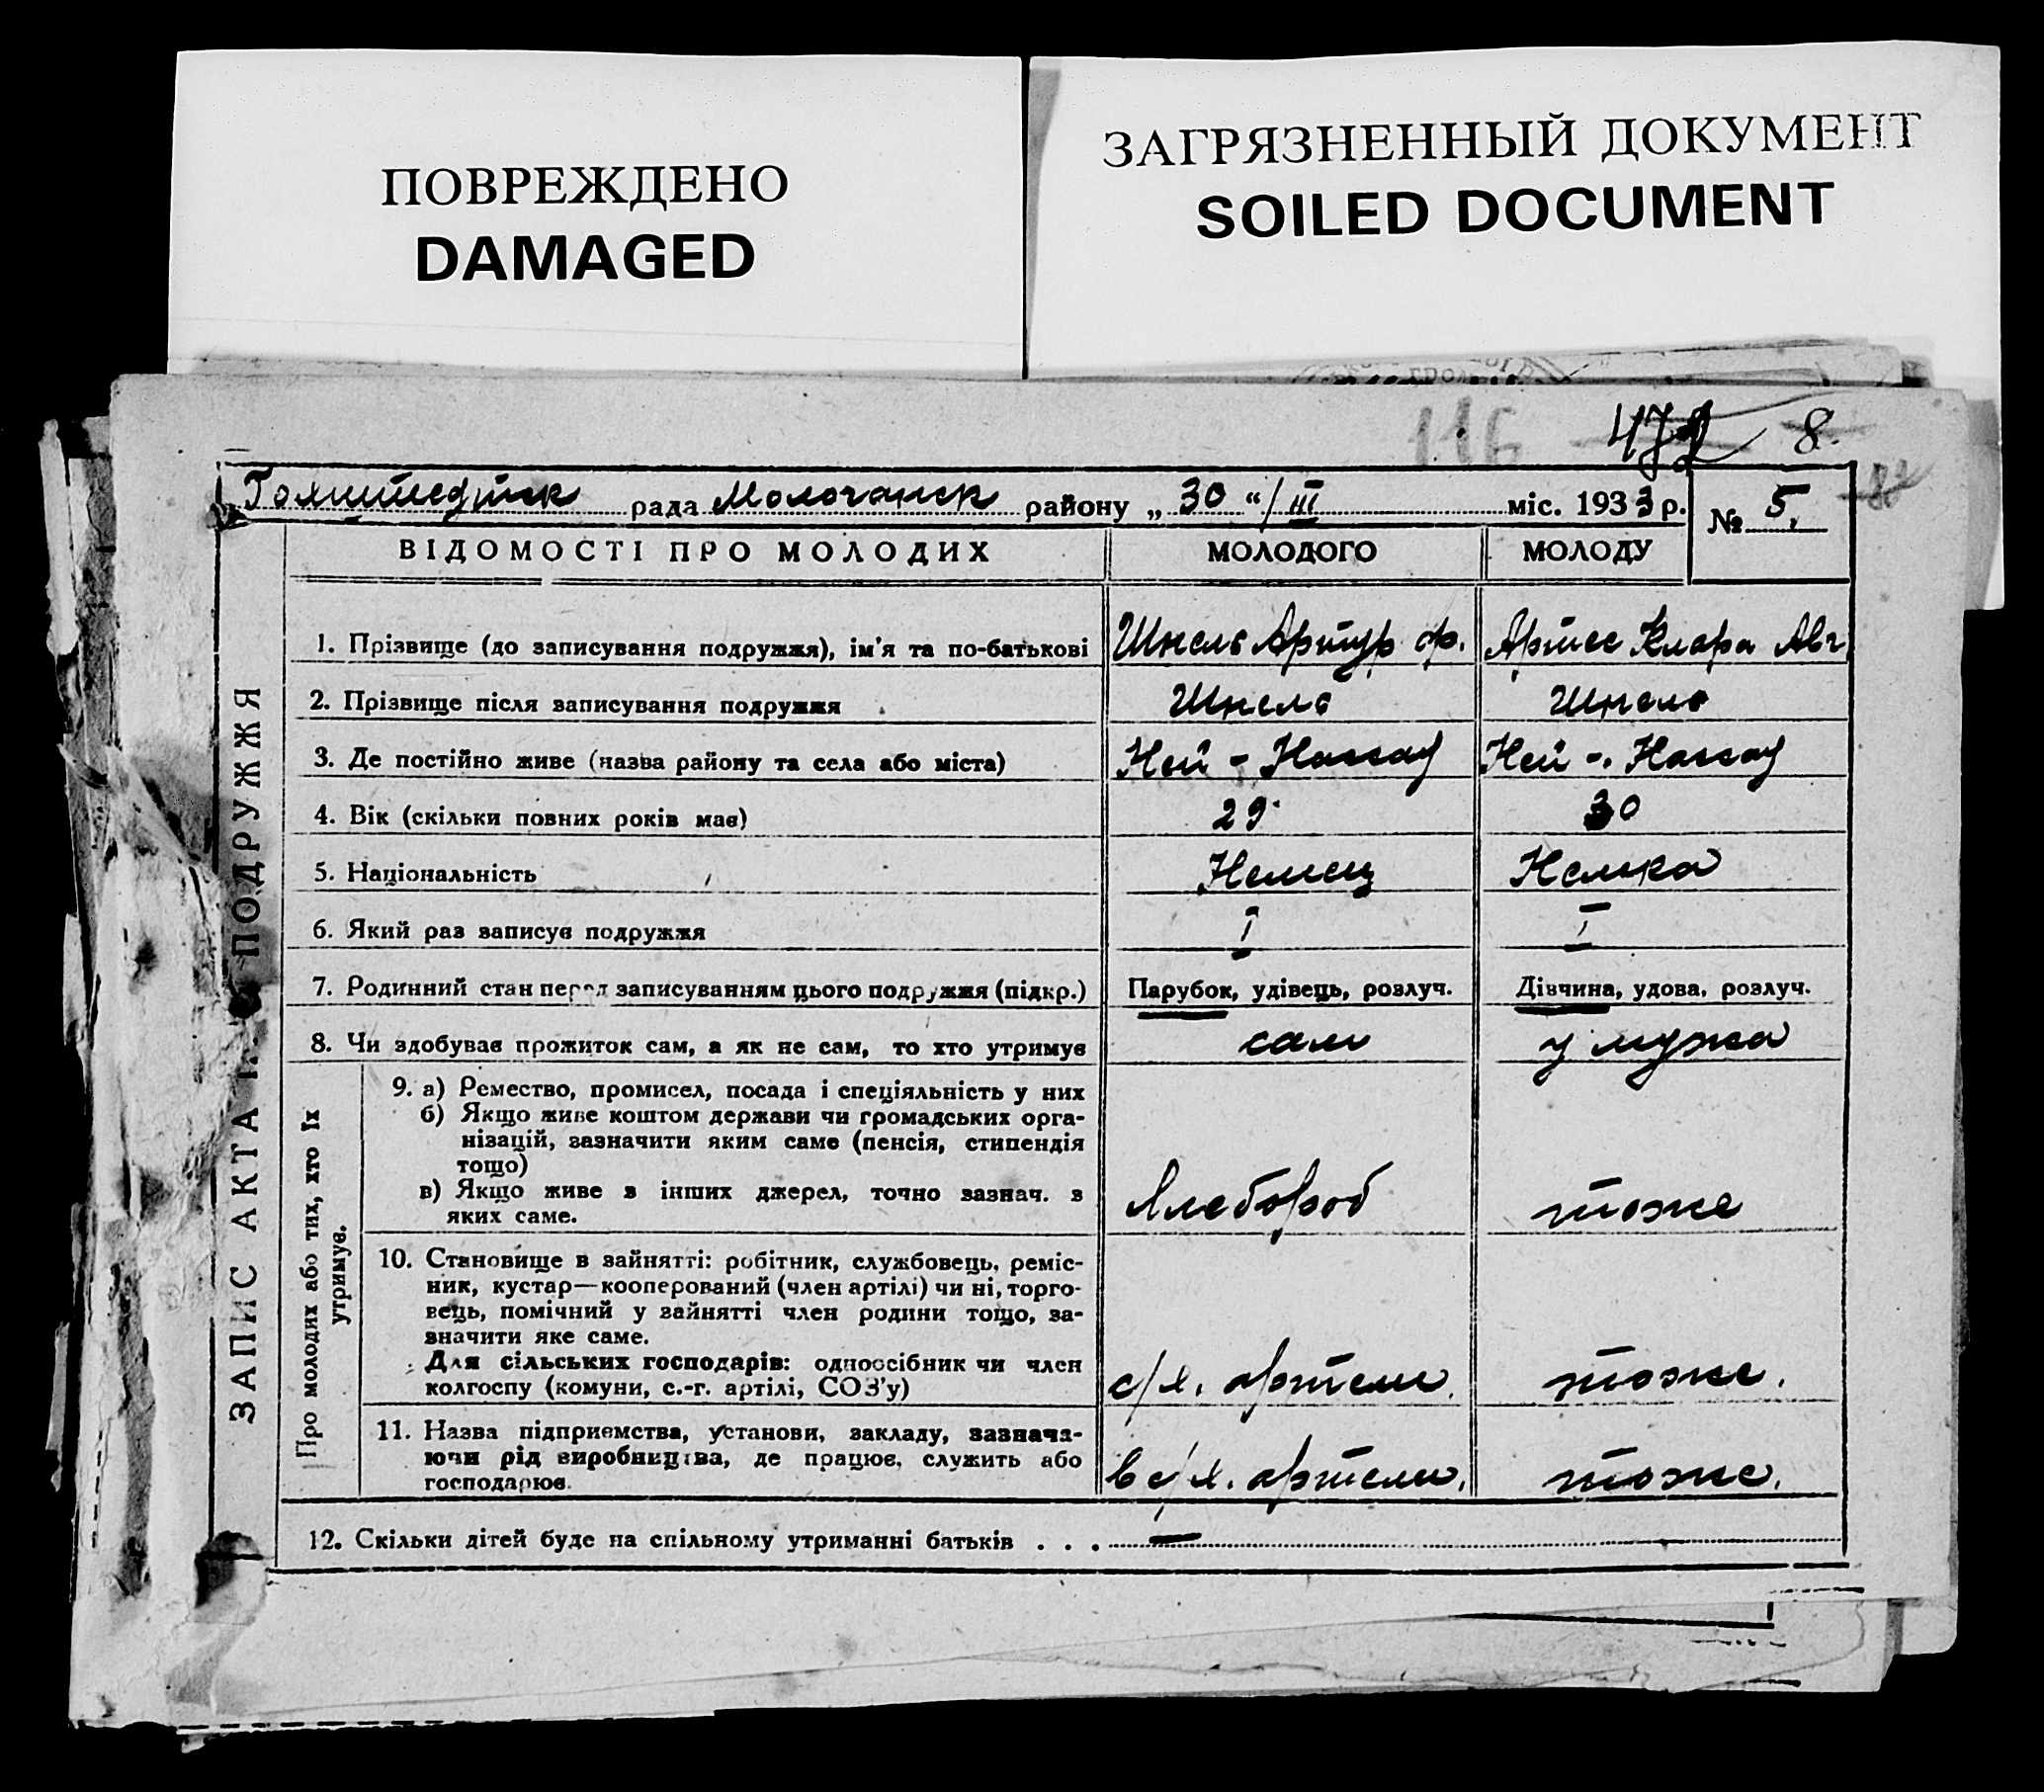 ПОВРЕЖДЕНО
DAMAGED
ЗАГРЯЗНЕННЫЙ ДОКУМЕНТ
SOILED DOCUMENT
116 8.
рада Молочанск району „ 30 “/ III міс. 1933 р. № 5,
ВІДОМОСТІ ПРО МОЛОДИХ МОЛОДОГО МОЛОДУ
ЗАПИС АКТА ПОДРУЖЖЯ
1. Прізвище (до записування подружжя), ім'я та по-батькові Шнель Артур Фр. Артес Клара Авг.
2. Прізвище після записування подружжя Шнель Шнель
3. Де постійно живе (назва району та села або міста) Ней - Нассау Ней - Нассау
4. Вік (скільки повних років має) 29 30
5. Національність Немец Немка
6. Який раз записує подружжя I I
7. Родинний стан перед записуванням цього подружжя (підкр.) Парубок, удівець, розлуч. Дівчина, удова, розлуч.
8. Чи здобуває прожиток сам, а як не сам, то хто утримує сам у мужа
Про молодих або тих, хто їх
утримує.
9. а) Ремество, промисел, посада і спеціяльність у них
б) Якщо живе коштом держави чи громадських орга-
нізацій, зазначити яким саме (пенсія, стипендія
тощо)
в) Якщо живе з інших джерел, точно зазнач. з
яких саме.
Хлебороб тоже
10. Становище в зайнятті: робітник, службовець, реміс-
ник, кустар—кооперований (член артілі) чи ні, торго-
вець, помічний у зайнятті член родини тощо, за-
значити яке саме.
Для сільських господарів: одноосібник чи член
колгоспу (комуни, с.-г. артілі, СОЗ'у)
с/х. артели. тоже.
11. Назва підприємства, установи, закладу, зазнача-
ючи рід виробництва, де працює, служить або
господарює.
в с/х. артели. тоже.
12. Скільки дітей буде на спільному утриманні батьків . . . —